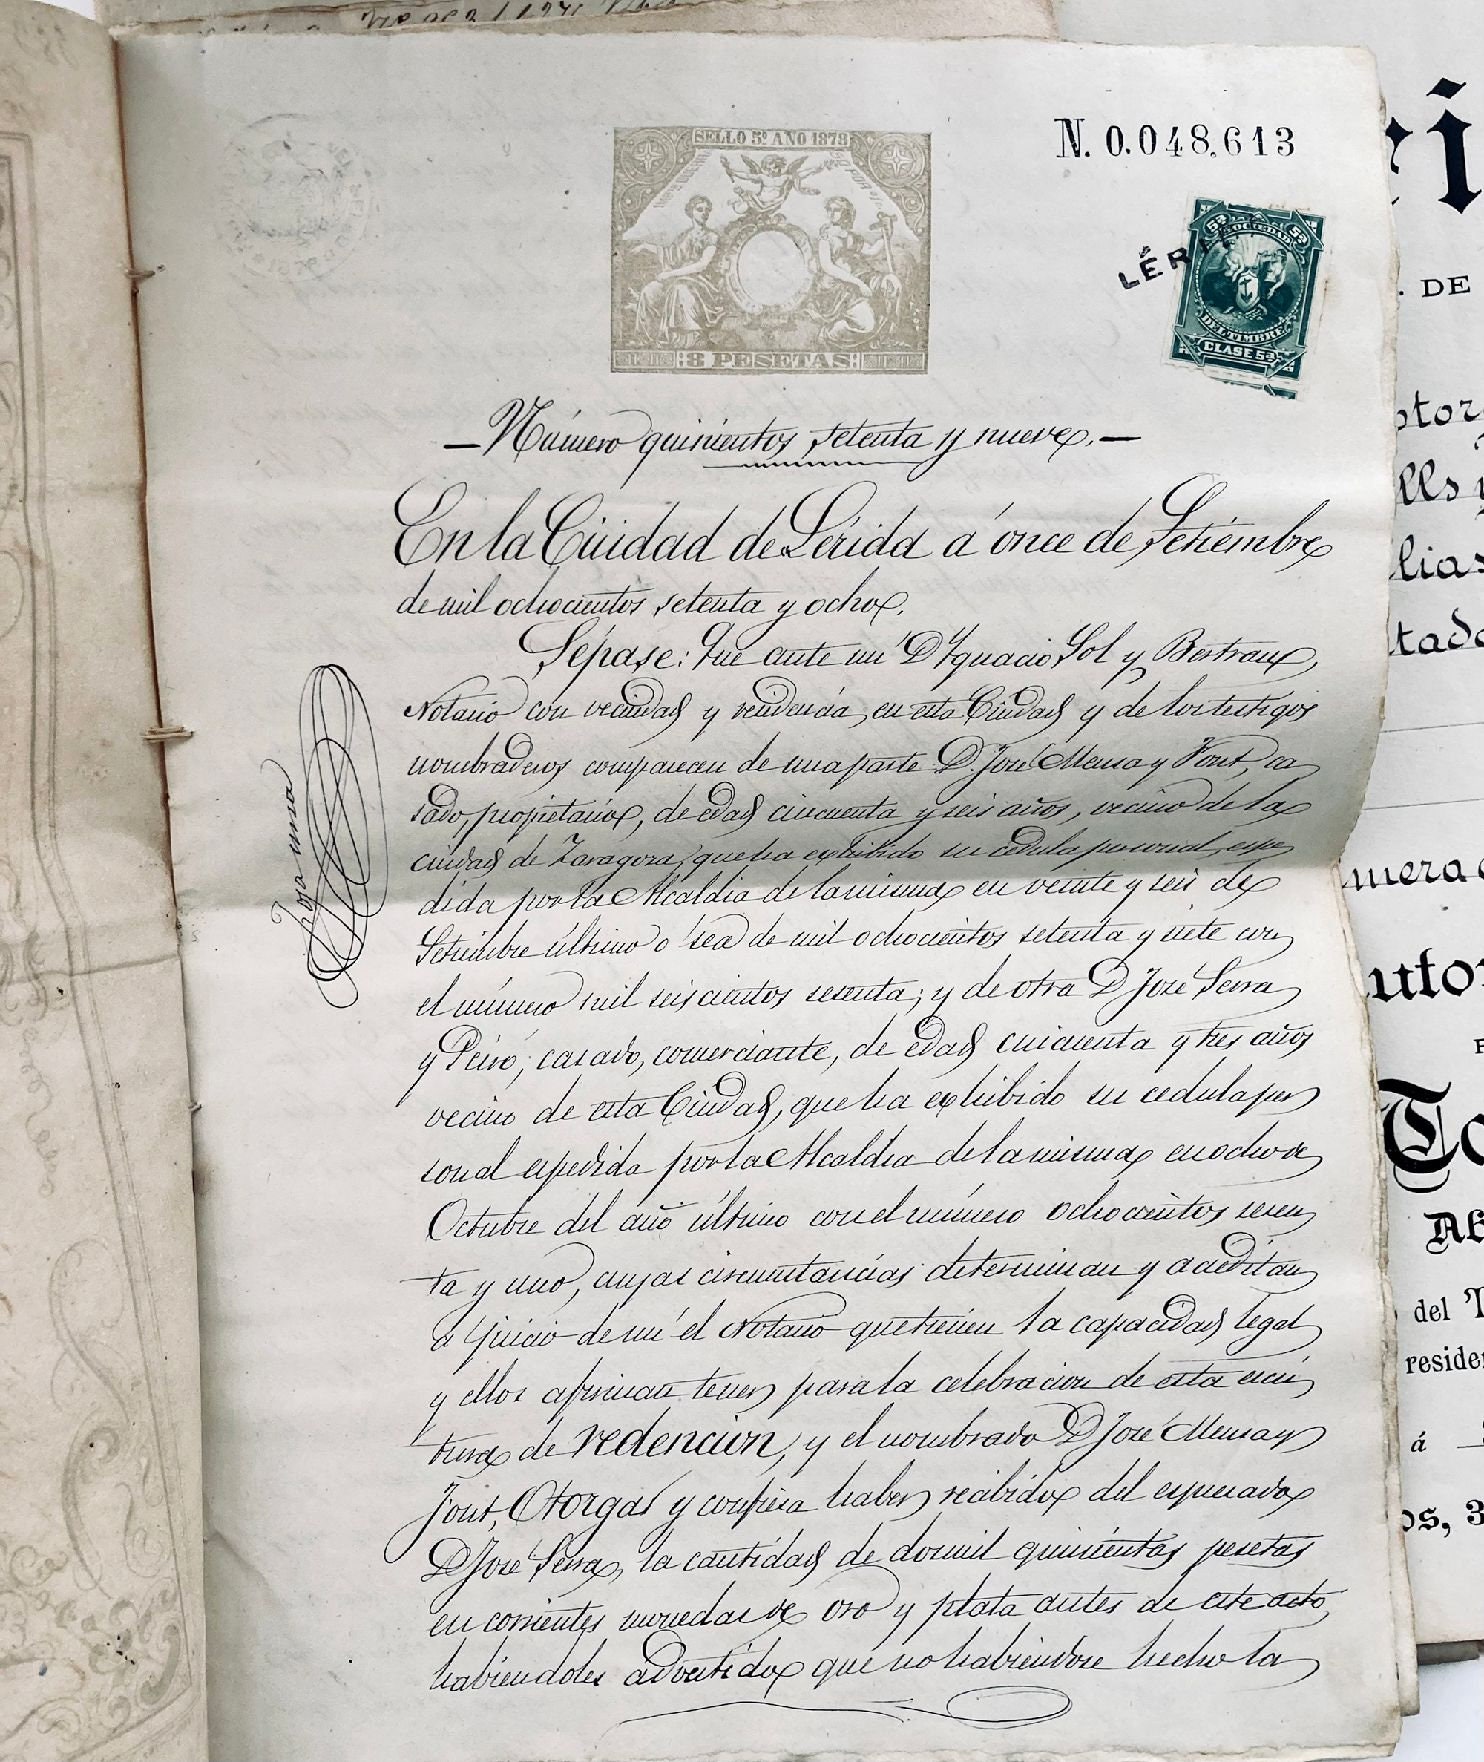 SELLO 5º AÑO 1878
3 PESETAS
N. 0.048,613
LÉRI
SOCIEDAD
DEL TIMBRE
CLASE 5ª
—Número quinientos setenta y nueve.—
En la Ciudad de Lérida á once de Setiembre
de mil ochocientos setenta y ocho.
Sépase: Que ante mi D. Ygnacio Sol y Bertran,
Notario con vecindad y residencia en esta Ciudad y de los testigos
nombraderos comparecen de una parte D. José Mensa y Font, ca
sado, propietario, de edad cincuenta y seis años, vecino de la
ciudad de Zaragoza, que ha exhibido su cédula personal espe
dida por la Alcaldia de la misma en veinte y seis de
Setiembre último o sea de mil ochocientos setenta y siete con
el número mil seiscientos sesenta; y de otra D. José Serra
y Peiró, casado, comerciante, de edad cincuenta y tres años
vecino de esta Ciudad, que ha exhibido su cedula per
sonal espedida por la Alcaldia de la misma en ocho de
Octubre del año último con el número ochocientos sesen
ta y uno, cuyas circunstancias determinan y acreditan
a juicio de mi el Notario que tienen la capacidad legal
y ellos afirman tener para la celebracion de esta escri
tura de redencion, y el nombrado D. José Mensa y
Font, Otorga y confiesa haber recibido del espresado
D. José Serra, la cantidad de dos mil quinientas pesetas
en corrientes monedas de oro y plata antes de este acto,
habiendoles advertido que no habiendose hecho la
hoja una
i
. DE
ptor
lls y
lias
tado
mera
utor
To
del T
reside
á
os, 3